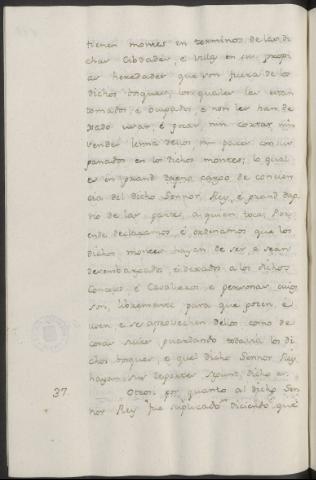 tienen montes en terminos de las di
chas Cibdades, e Villas en sus propi
as heredades que son fuera de los
dichos toques, los quales les estan
tomados, é ocupados, e non les han de
xado usar, é gozar, nin cortar, nin
vender leña dellos nin pacer con sus
ganados en los dichos montes; lo qual
es en grand daño é cargo de concien
cia del dicho Señor Rey, é grand dap
ño de las partes, a quien toca, Por
ende declaramos, é ordenamos que los
dichos montes hayan de ser, e sean
desembargados, é dexados a los dichos
Concejos, é Cavalleros, e personas, cuios
son, libremente para que gocen, é
usen, e se aprovechen dellos como de
cosas suias guardando todavia los di
chos toques, e quel dicho Señor Rey
haya sus segun dicho es.
37. Otrosi, por quanto al dicho Señ
nor Rey fue suplicado diciendo que